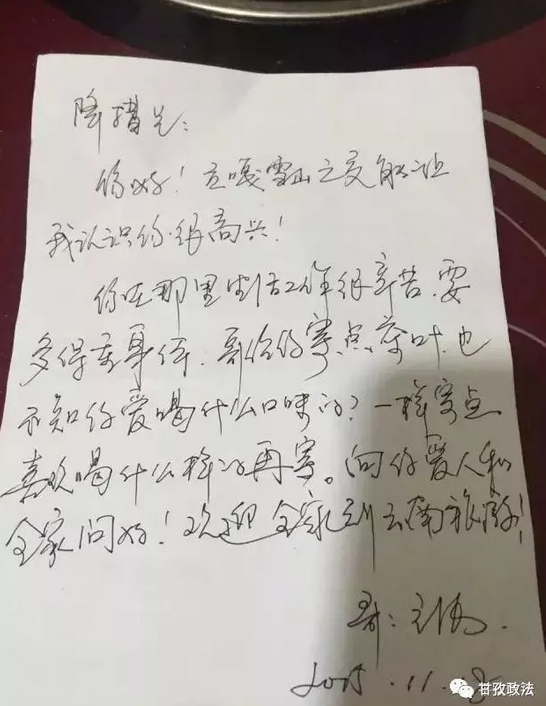 降措兄：
你好！立嘎雪山之交能让
我认识你.很高兴！
你在那里生活工作很辛苦.要
多保重身体.哥给你寄点茶叶.也
不知你爱喝什么口味的？一样寄点
喜欢喝什么样的再寄。向你爱人和
全家问好！欢迎全家到云南旅游！
哥：
2015.11.8
甘孜政法